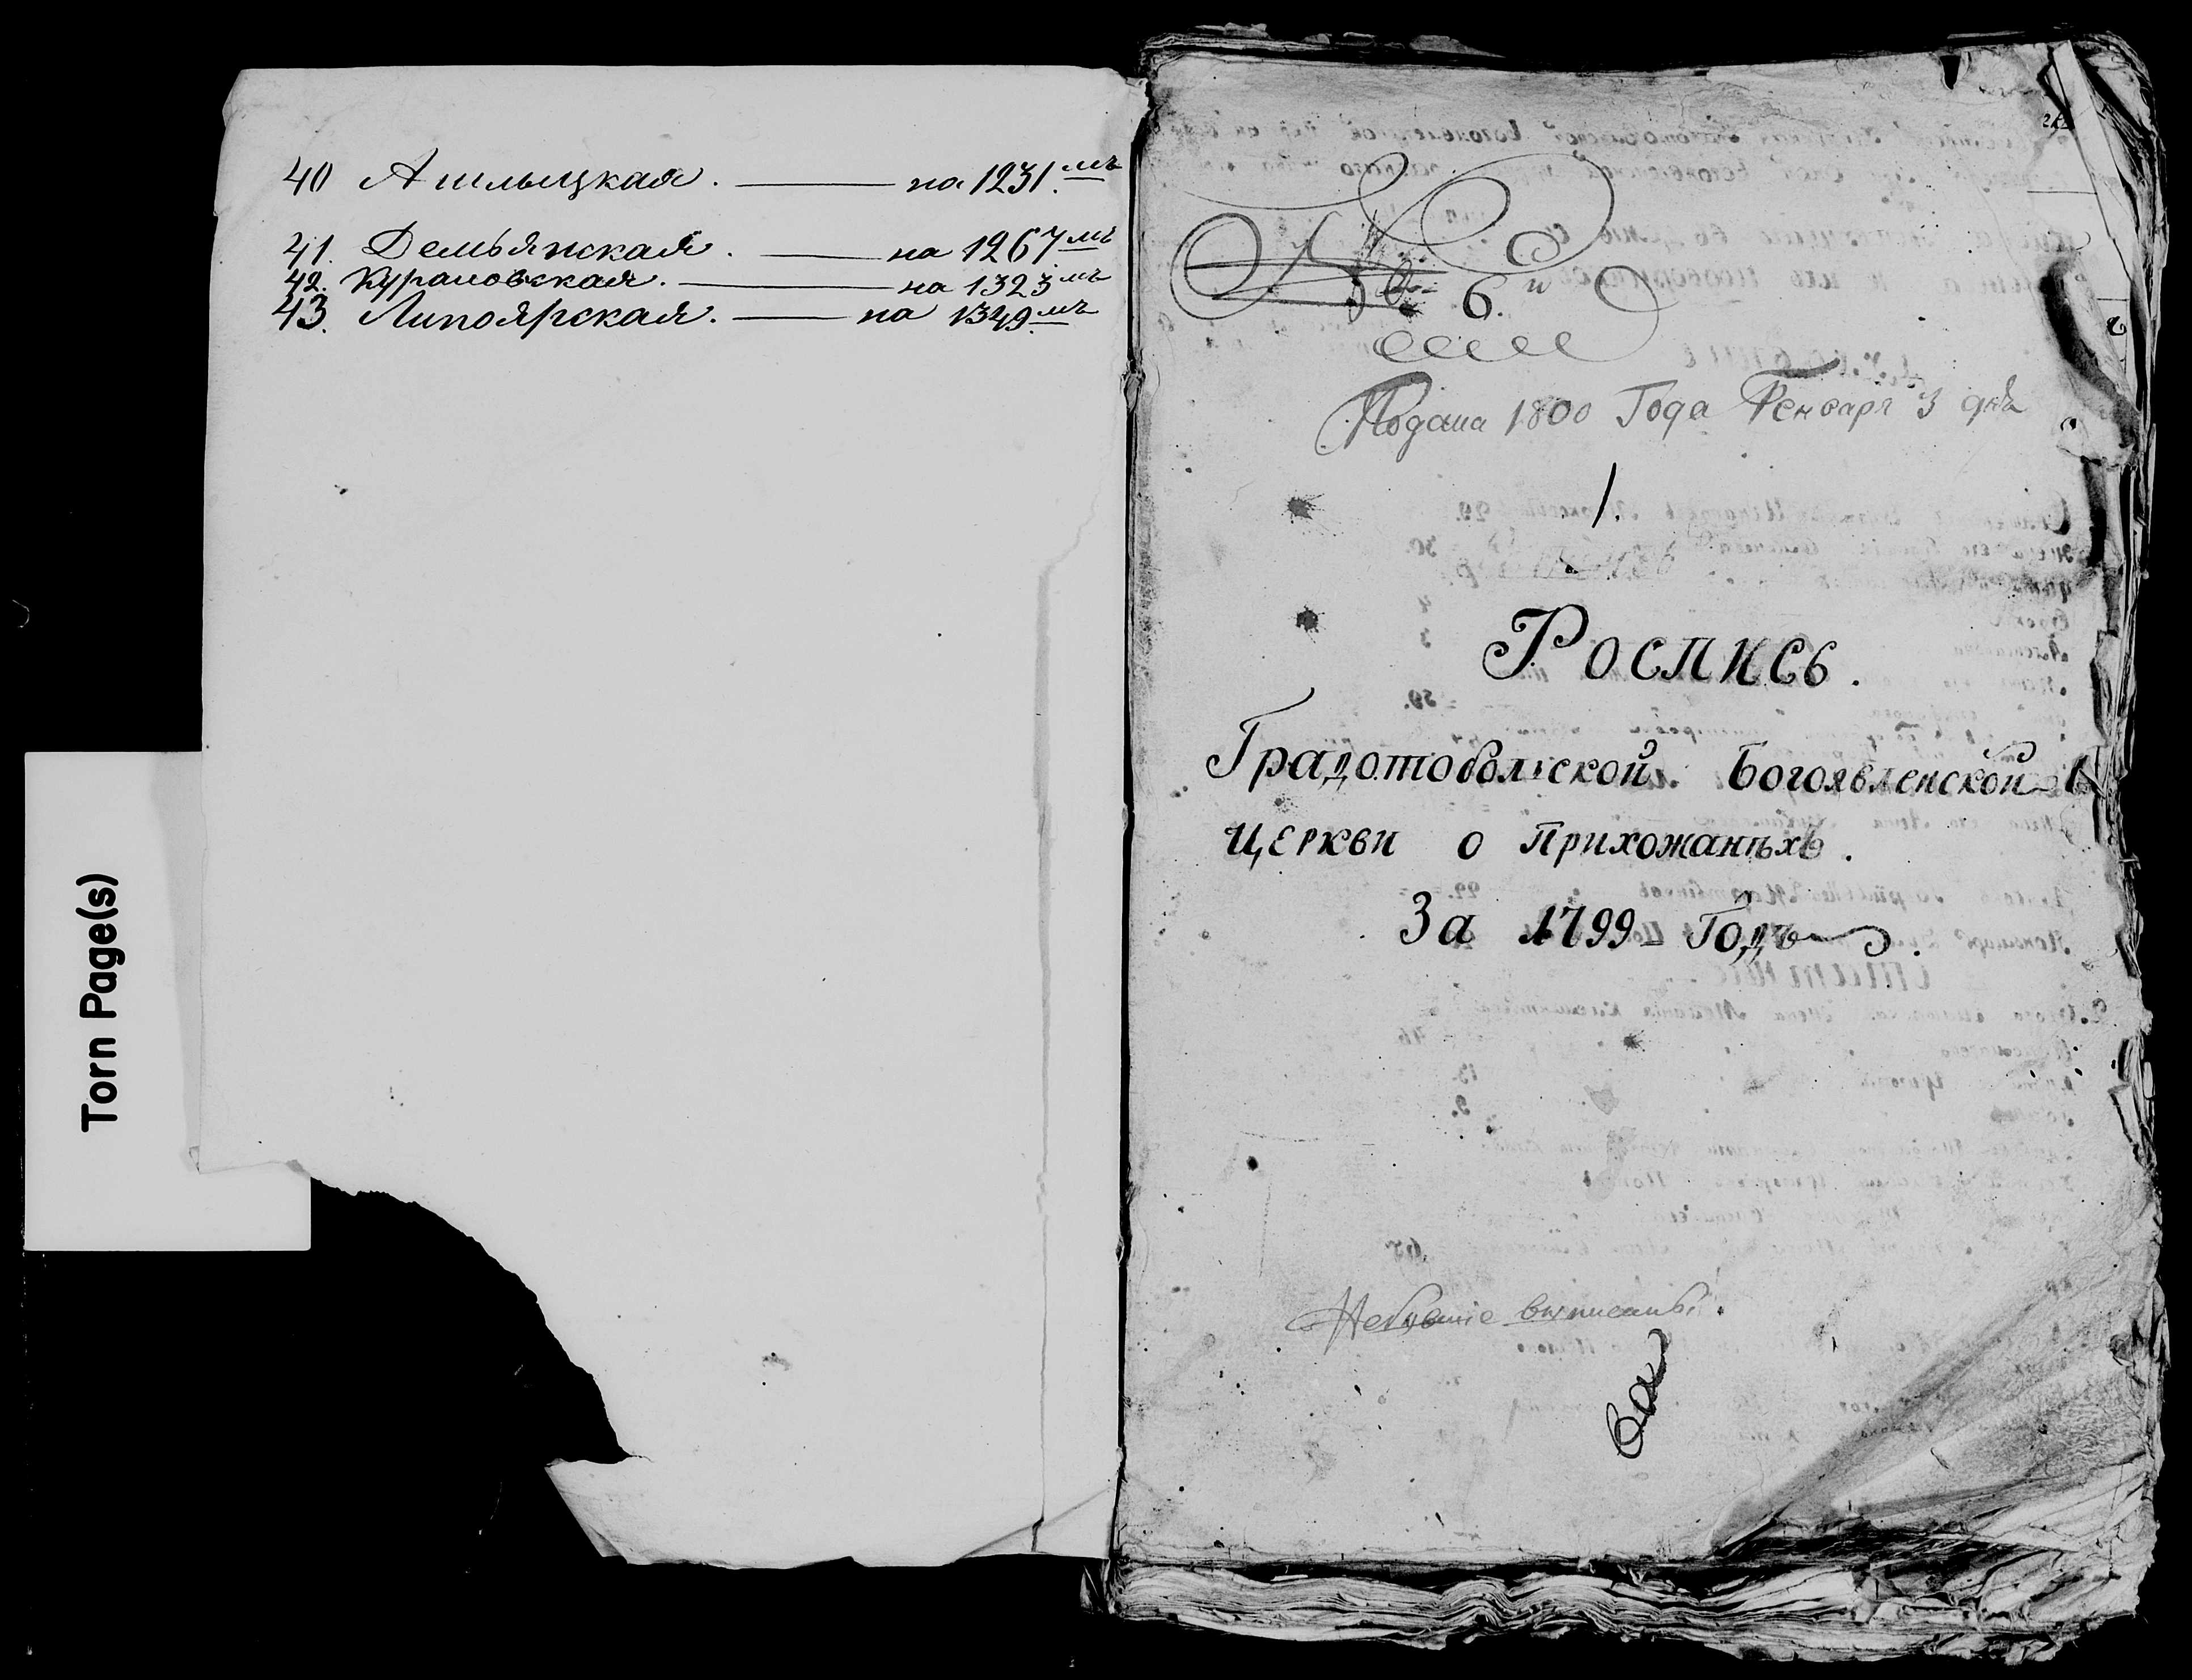 40 Ашлыцкая. — на 1231.мъ
41. Демьянская. — на 1267мъ
42. Кураловская. — на 1323мъ
43. Липоярская. — на 1349.мъ
Torn Page(s)
№ 6.й
Подана 1800 Года Генваря 3 дня
1.
Роспись.
Градотоболской Богоявленской
церкви о прихожанѣхъ.
За 1799 Годъ.
Небывшіе выписаны.